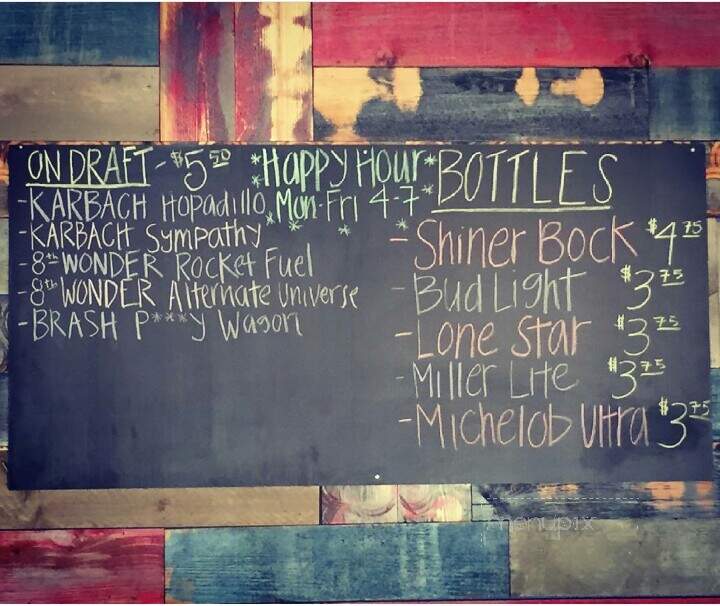 ON DRAFT - $5 50
-KARBACH Hopadillo
-KARBACH Sympathy
-8th WONDER Rocket Fuel
-8th WONDER Alternate Universe
-BRASH P***y Wagon
*Happy Hour*
*Mon-Fri 4-7*
* * *
BOTTLES
-Shiner Bock $4 75
-Bud Light $3 75
-Lone Star $3 75
-Miller Lite $3 75
-Michelob Ultra $3 75
menupix